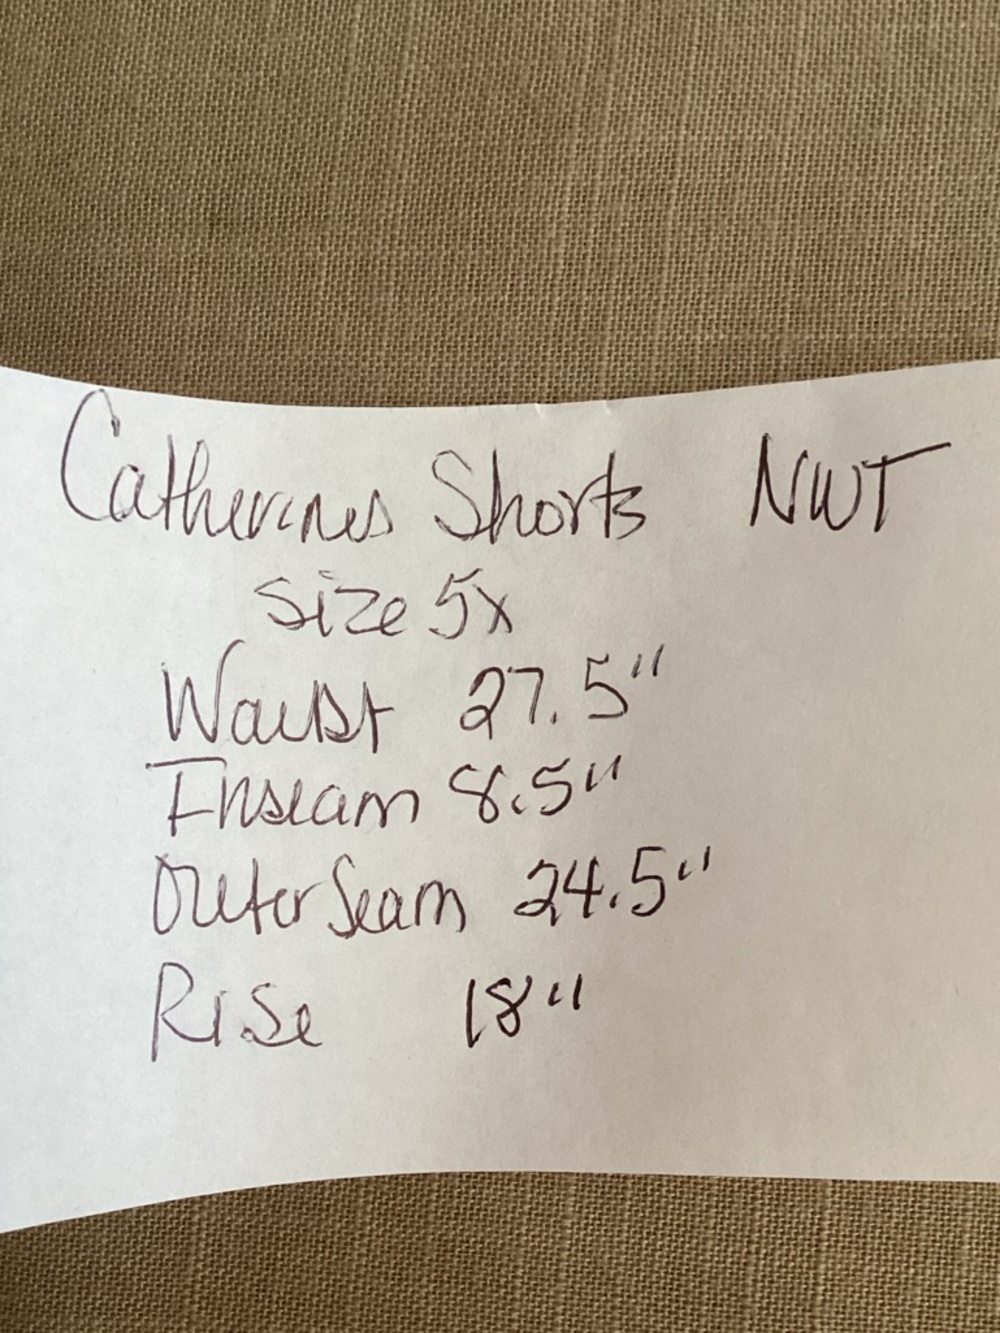 Catherines Shorts NWT
Size 5x
Waist 27.5"
Inseam 8.5"
Outer Seam 24.5"
Rise 18"